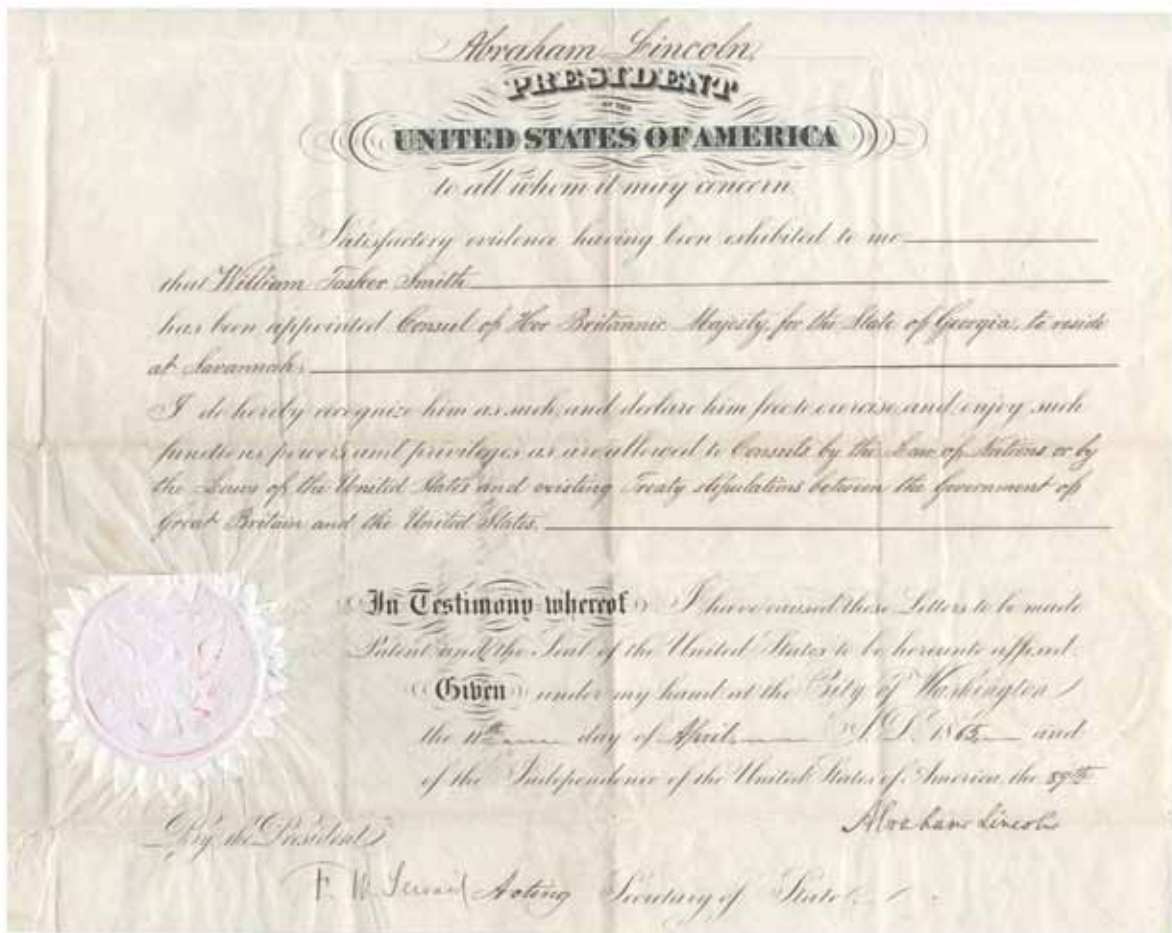 Abraham Lincoln,
PRESIDENT
OF THE
UNITED STATES OF AMERICA
to all whom it may concern
Satisfactory evidence having been exhibited to me
that William Tasker Smith
has been appointed Consul of Her Britannic Majesty, for the State of Georgia, to reside
at Savannah,
I do hereby recognize him as such, and declare him free to exercise and enjoy such
functions powers and privileges as are allowed to Consuls by the Law of Nations or by
the Laws of the United States and existing Treaty stipulations between the Government of
Great Britain and the United States.
In Testimony whereof I have caused these Letters to be made
Patent and the Seal of the United States to be hereunto affixed.
Given under my hand at the City of Washington
the 11th day of April, A.D. 1865, and
of the Independence of the United States of America, the 89th
Abraham Lincoln
By the President
F. W. Seward Acting Secretary of State